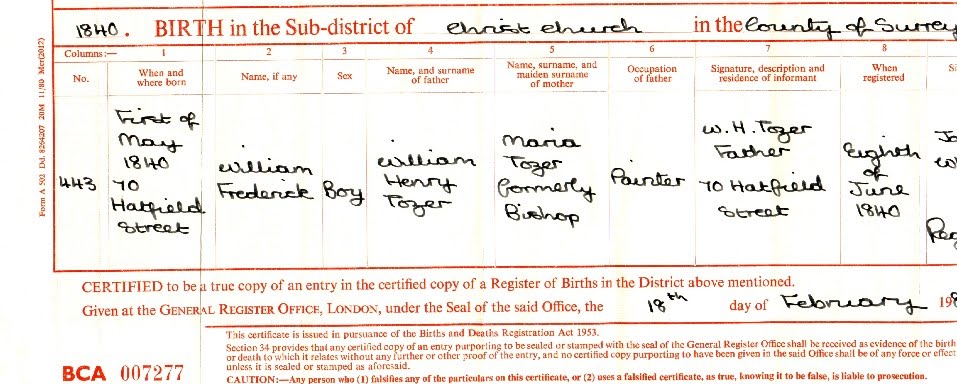 1840. BIRTH in the Sub-district of Christchurch in the County of Surrey
Columns:— 1 2 3 4 5 6 7 8
No. When and where born Name, if any Sex Name, and surname of father Name, surname, and maiden surname of mother Occupation of father Signature, description and residence of informant When registered
443
First of
May
1840
70
Hatfield
Street
William
Frederick
Boy
William
Henry
Tozer
Maria
Tozer
formerly
Bishop
Painter
W. H. Tozer
Father
70 Hatfield
Street
Eighth
of
June
1840
CERTIFIED to be a true copy of an entry in the certified copy of a Register of Births in the District above mentioned.
Given at the GENERAL REGISTER OFFICE, LONDON, under the Seal of the said Office, the 18th day of February 19
This certificate is issued in pursuance of the Births and Deaths Registration Act 1953.
Section 34 provides that any certified copy of an entry purporting to be sealed or stamped with the seal of the General Register Office shall be received as evidence of the birth
or death to which it relates without any further or other proof of the entry, and no certified copy purporting to have been given in the said Office shall be of any force or effect
unless it is sealed or stamped as aforesaid.
CAUTION:—Any person who (1) falsifies any of the particulars on this certificate, or (2) uses a falsified certificate, as true, knowing it to be false, is liable to prosecution.
BCA 007277